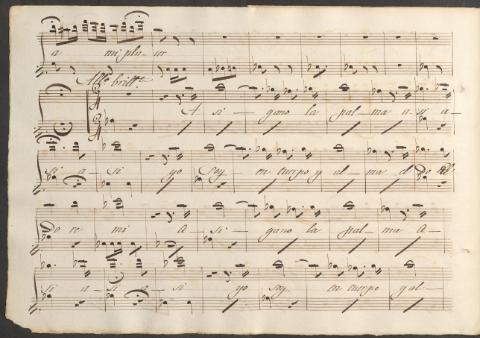 a mi plu-
All.º brill.te
A si- gano la pal- ma a- si a-
si a- si yo Soy- en cuerpo y al- ma el
Do re mi a- si- gano la pal- ma A-
si a- si a- si yo soy- en cuerpo y al-